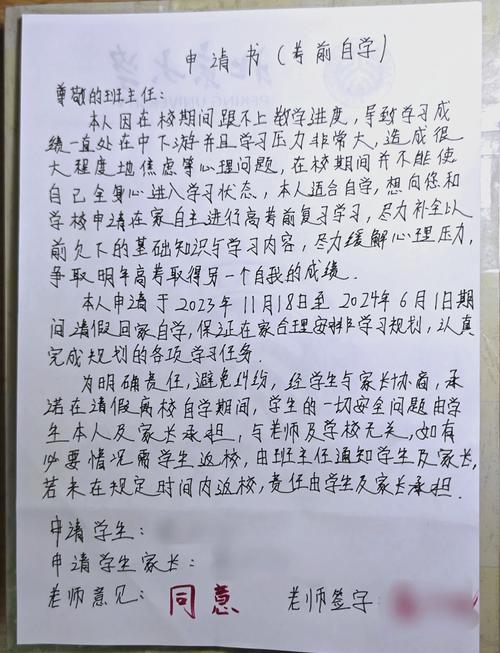 申请书（考前自学）
尊敬的班主任：
本人因在校期间跟不上教学进度，导致学习成
绩一直处在中下游并且学习压力非常大，造成很
大程度地焦虑等心理问题，在校期间并不能使
自己全身心进入学习状态，本人适合自学，想向您和
学校申请在家自主进行高考前复习学习，尽力补全以
前欠下的基础知识与学习内容，尽力缓解心理压力，
争取明年高考取得另一个自我的成绩.
本人申请于2023年11月18日至2024年6月1日期
间请假回家自学，保证在家合理安排学习规划，认真
完成规划的各项学习任务.
为明确责任，避免纠纷，经学生与家长协商，承
诺在请假离校自学期间，学生的一切安全问题由学
生本人及家长承担，与老师及学校无关，如有
必要情况需学生返校，由班主任通知学生及家长，
若未在规定时间内返校，责任由学生及家长承担.
申请学生：
申请学生家长：
老师意见：同意 老师签字：